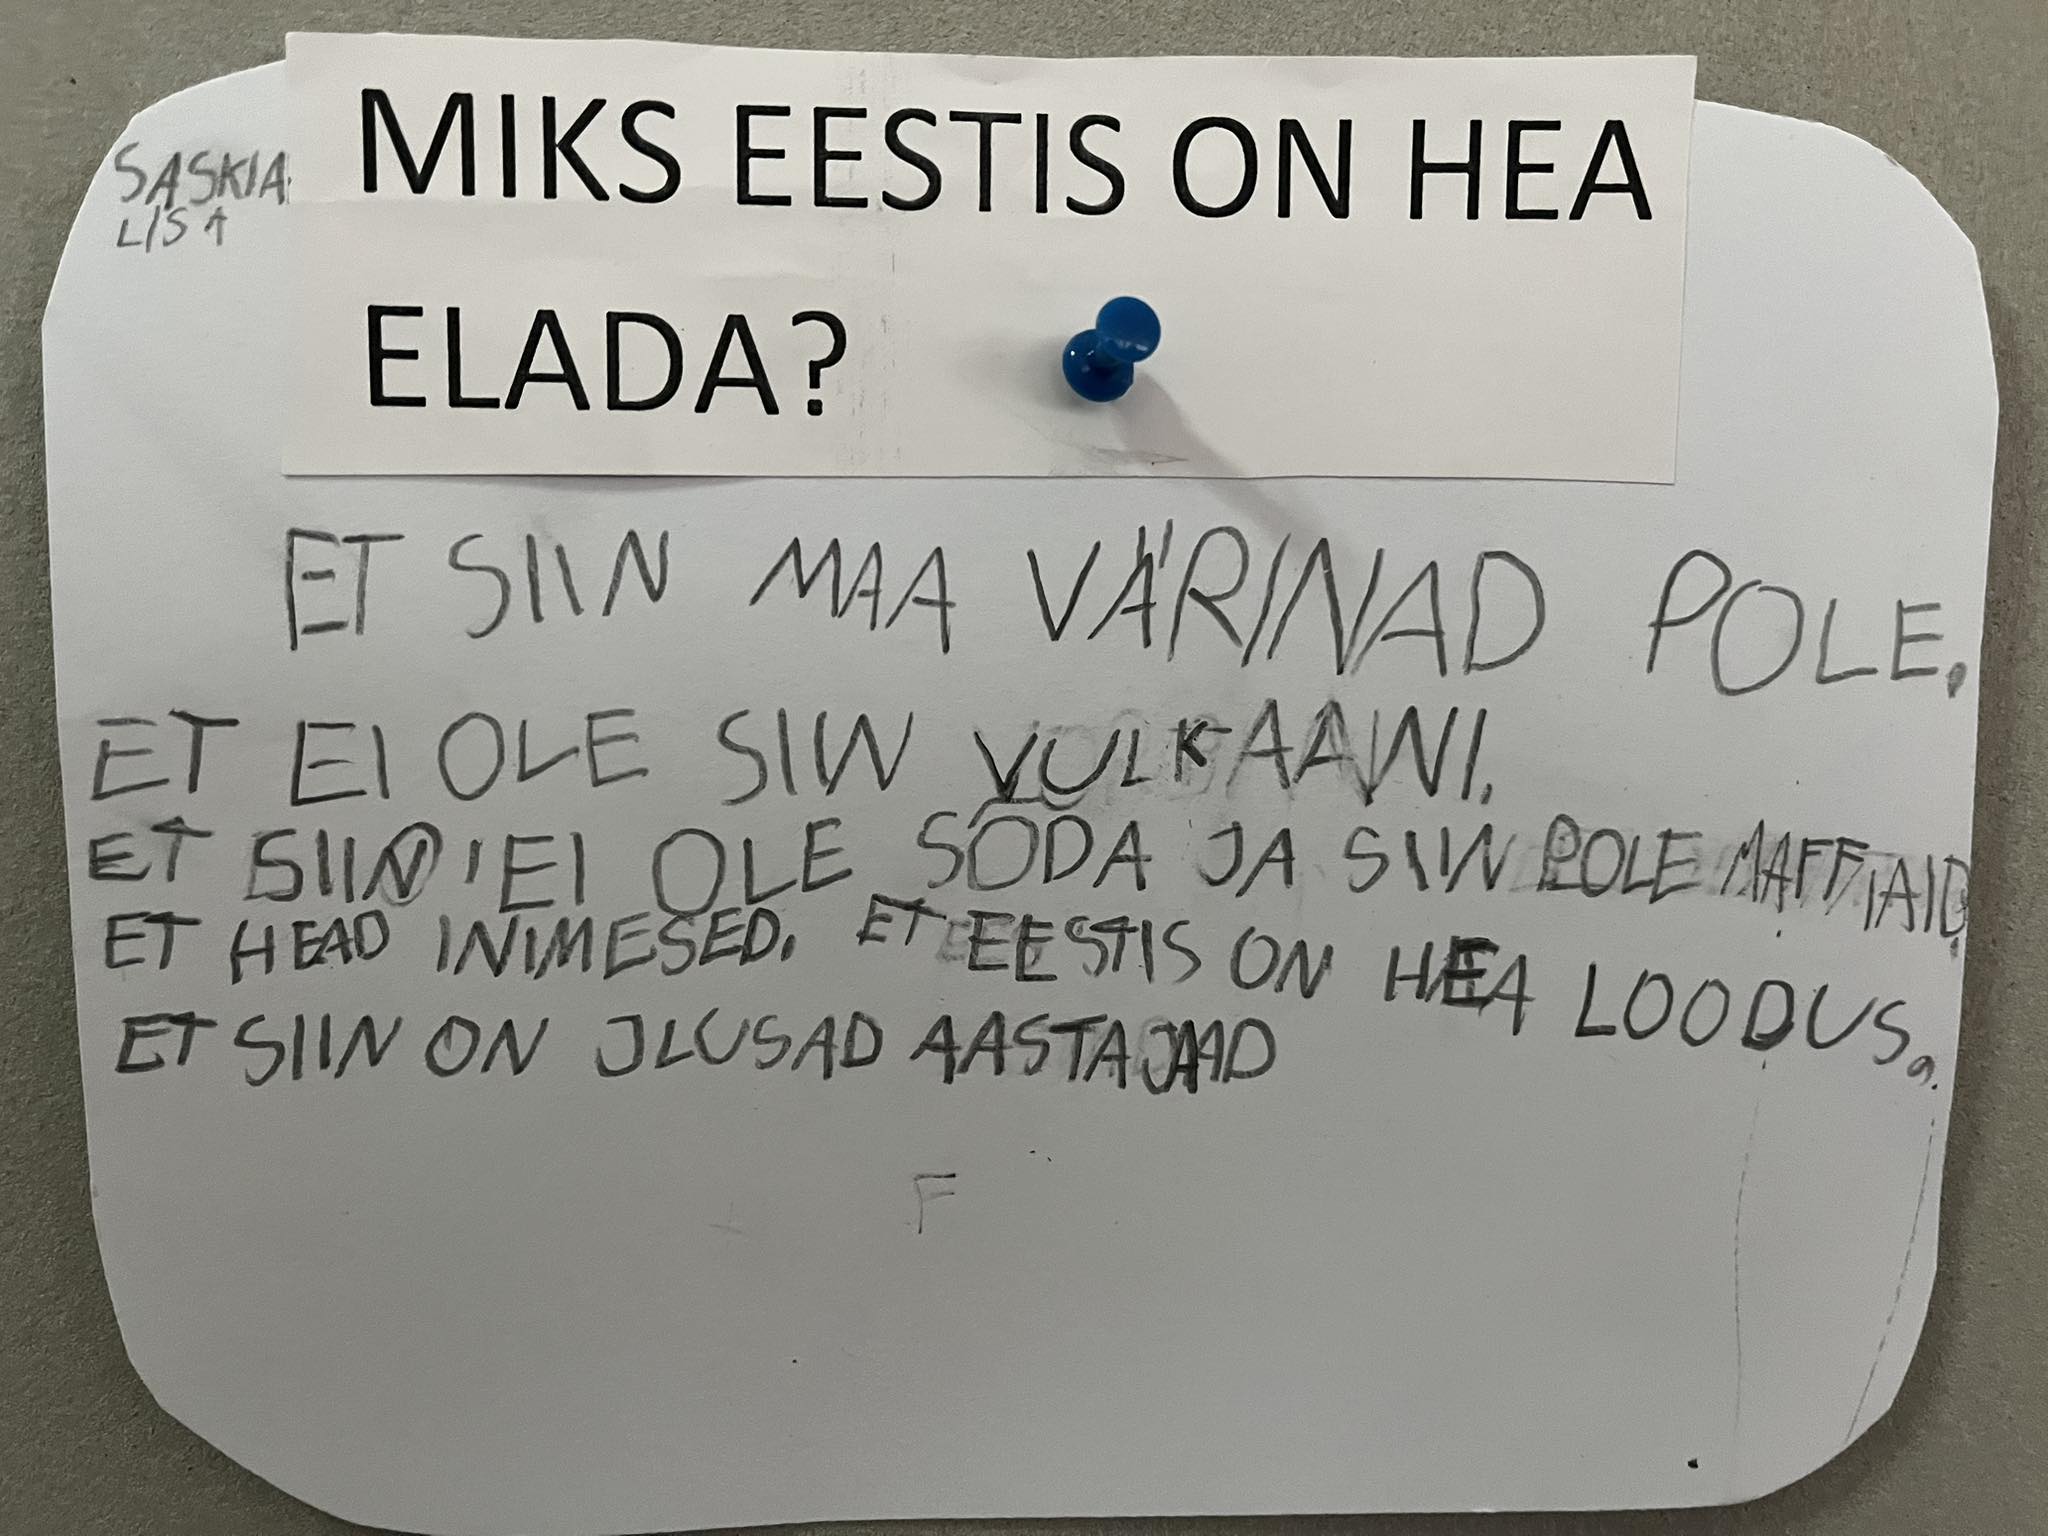 MIKS EESTIS ON HEA
ELADA?
SASKIA
LISA
ET SIIN MAA VÄRINAD POLE.
ET EI OLE SIIN VULKAANI.
ET SIIN EI OLE SÕDA JA SIIN POLE MAFFIAID.
ET HEAD INIMESED. ET EESTIS ON HEA LOODUS.
ET SIIN ON JLUSAD AASTAJAAD
F